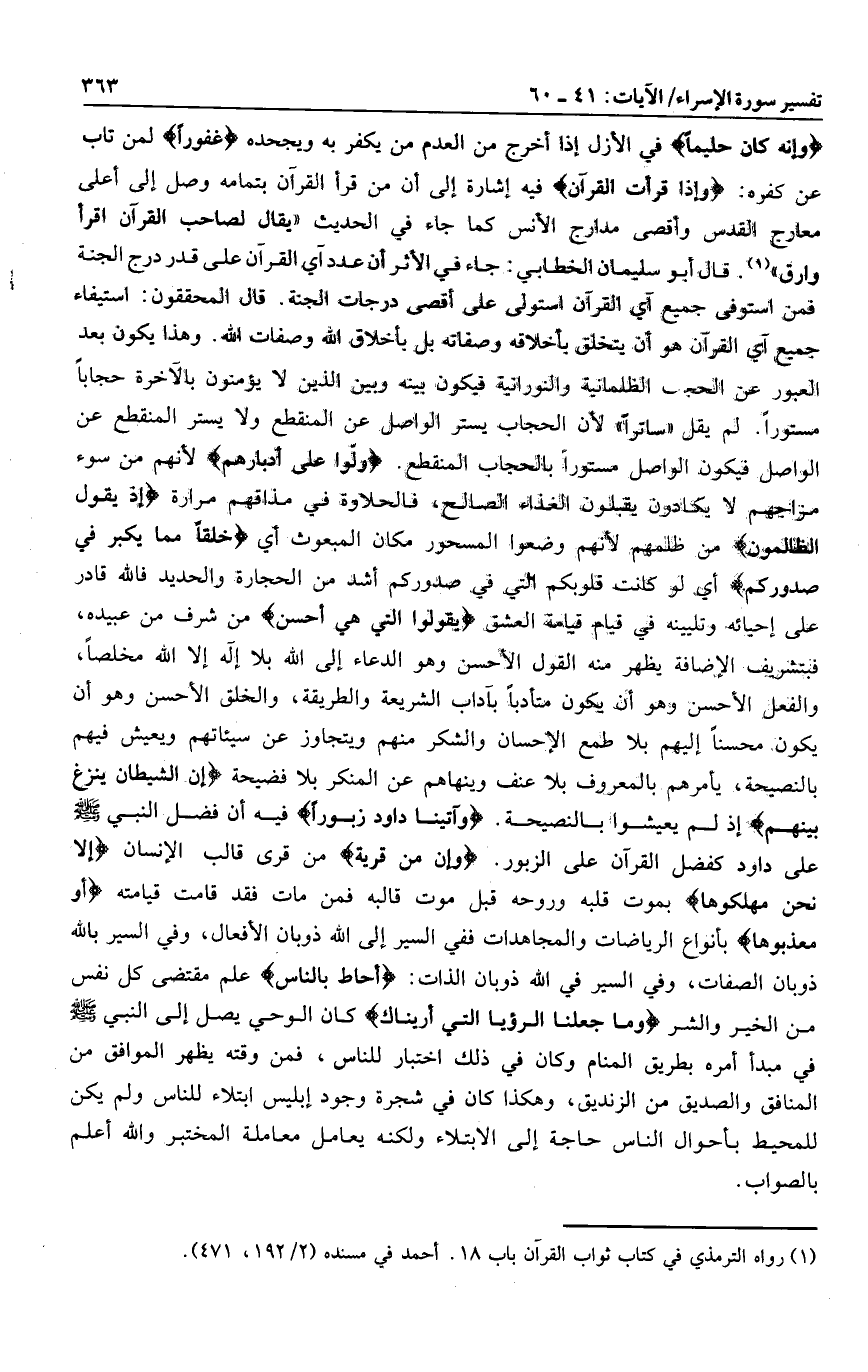 تفسير سورة الإسراء/ الآيات: ٤١ ـ ٦٠
٣٦٣
﴿وإنه كان حليماً﴾ في الأزل إذا أخرج من العدم من يكفر به ويجحده ﴿غفوراً﴾ لمن تاب
عن كفره: ﴿وإذا قرأت القرآن﴾ فيه إشارة إلى أن من قرأ القرآن بتمامه وصل إلى أعلى
معارج القدس وأقصى مدارج الأنس كما جاء في الحديث «يقال لصاحب القرآن اقرأ
وارق»(١). قال أبو سليمان الخطابي: جاء في الأثر أن عدد آي القرآن على قدر درج الجنة
فمن استوفى جميع آي القرآن استولى على أقصى درجات الجنة. قال المحققون: استيفاء
جميع آي القرآن هو أن يتخلق بأخلاقه وصفاته بل بأخلاق الله وصفات الله. وهذا يكون بعد
العبور عن الحجب الظلمانية والنورانية فيكون بينه وبين الذين لا يؤمنون بالآخرة حجاباً
مستوراً. لم يقل «ساتراً» لأن الحجاب يستر الواصل عن المنقطع ولا يستر المنقطع عن
الواصل فيكون الواصل مستوراً بالحجاب المنقطع. ﴿ولّوا على أدبارهم﴾ لأنهم من سوء
مزاجهم لا يكادون يقبلون الغذاء الصالح، فالحلاوة في مذاقهم مرارة ﴿إذ يقول
الظالمون﴾ من ظلمهم لأنهم وضعوا المسحور مكان المبعوث أي ﴿خلقاً مما يكبر في
صدوركم﴾ أي لو كانت قلوبكم التي في صدوركم أشد من الحجارة والحديد فالله قادر
على إحيائه وتليينه في قيام قيامة العشق ﴿يقولوا التي هي أحسن﴾ من شرف من عبيده،
فبتشريف الإضافة يظهر منه القول الأحسن وهو الدعاء إلى الله بلا إلٰه إلا الله مخلصاً،
والفعل الأحسن وهو أن يكون متأدباً بآداب الشريعة والطريقة، والخلق الأحسن وهو أن
يكون محسناً إليهم بلا طمع الإحسان والشكر منهم ويتجاوز عن سيئاتهم ويعيش فيهم
بالنصيحة، يأمرهم بالمعروف بلا عنف وينهاهم عن المنكر بلا فضيحة ﴿إن الشيطان ينزغ
بينهم﴾ إذ لم يعيشوا بالنصيحة. ﴿وآتينا داود زبوراً﴾ فيه أن فضل النبي ﷺ
على داود كفضل القرآن على الزبور. ﴿وإن من قرية﴾ من قرى قالب الإنسان ﴿إلا
نحن مهلكوها﴾ بموت قلبه وروحه قبل موت قالبه فمن مات فقد قامت قيامته ﴿أو
معذبوها﴾ بأنواع الرياضات والمجاهدات ففي السير إلى الله ذوبان الأفعال، وفي السير بالله
ذوبان الصفات، وفي السير في الله ذوبان الذات: ﴿أحاط بالناس﴾ علم مقتضى كل نفس
من الخير والشر ﴿وما جعلنا الرؤيا التي أريناك﴾ كان الوحي يصل إلى النبي ﷺ
في مبدأ أمره بطريق المنام وكان في ذلك اختبار للناس، فمن وقته يظهر الموافق من
المنافق والصديق من الزنديق، وهكذا كان في شجرة وجود إبليس ابتلاء للناس ولم يكن
للمحيط بأحوال الناس حاجة إلى الابتلاء ولكنه يعامل معاملة المختبر والله أعلم
بالصواب.
(١) رواه الترمذي في كتاب ثواب القرآن باب ١٨. أحمد في مسنده (٢/ ١٩٢، ٤٧١).